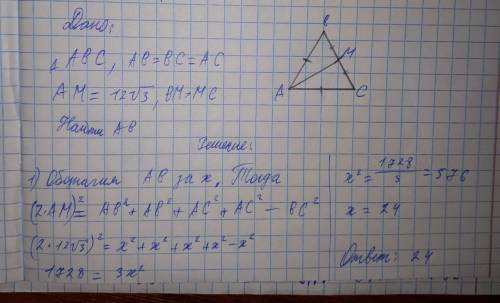 Дано:
△ ABC, AB=BC=AC
AM = 12√3, BM=MC
Найти AB
B
M
A
C
Решение:
1) Обозначим AB за x. Тогда
(2·AM)² = AB² + AB² + AC² + AC² − BC²
(2·12√3)² = x² + x² + x² + x² − x²
1728 = 3x²
x² = 1728/3 = 576
x = 24
Ответ: 24